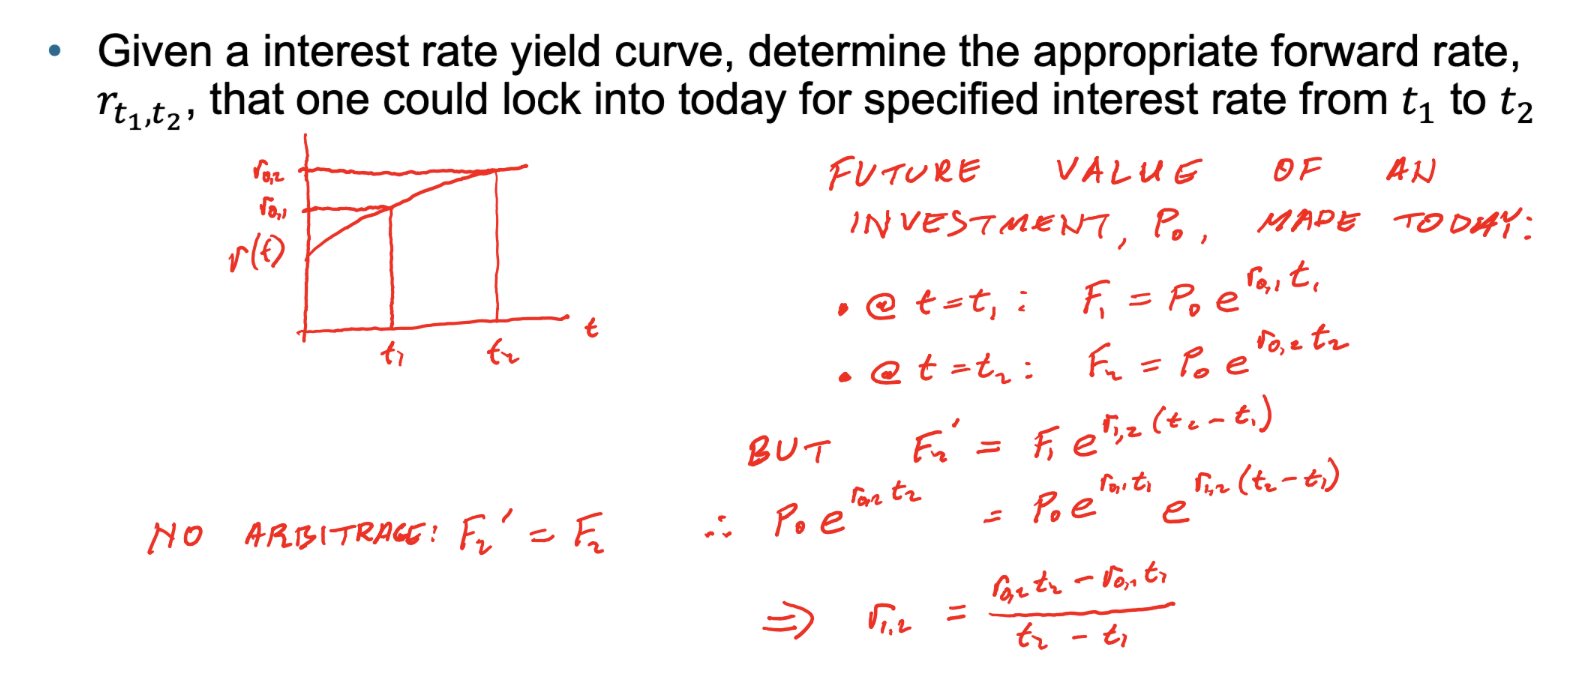 • Given a interest rate yield curve, determine the appropriate forward rate,
r_{t₁,t₂}, that one could lock into today for specified interest rate from t₁ to t₂
r₀,₂
r₀,₁
r(t)
t₁ t₂ t
FUTURE VALUE OF AN
INVESTMENT, P₀, MADE TODAY:
• @ t=t₁ : F₁ = P₀ e^{r₀,₁ t₁}
• @ t=t₂ : F₂ = P₀ e^{r₀,₂ t₂}
BUT F₂' = F₁ e^{r₁,₂ (t₂-t₁)}
NO ARBITRAGE: F₂' = F₂ ∴ P₀ e^{r₀,₂ t₂} = P₀ e^{r₀,₁ t₁} e^{r₁,₂ (t₂-t₁)}
⇒ r₁,₂ = (r₀,₂ t₂ - r₀,₁ t₁) / (t₂ - t₁)